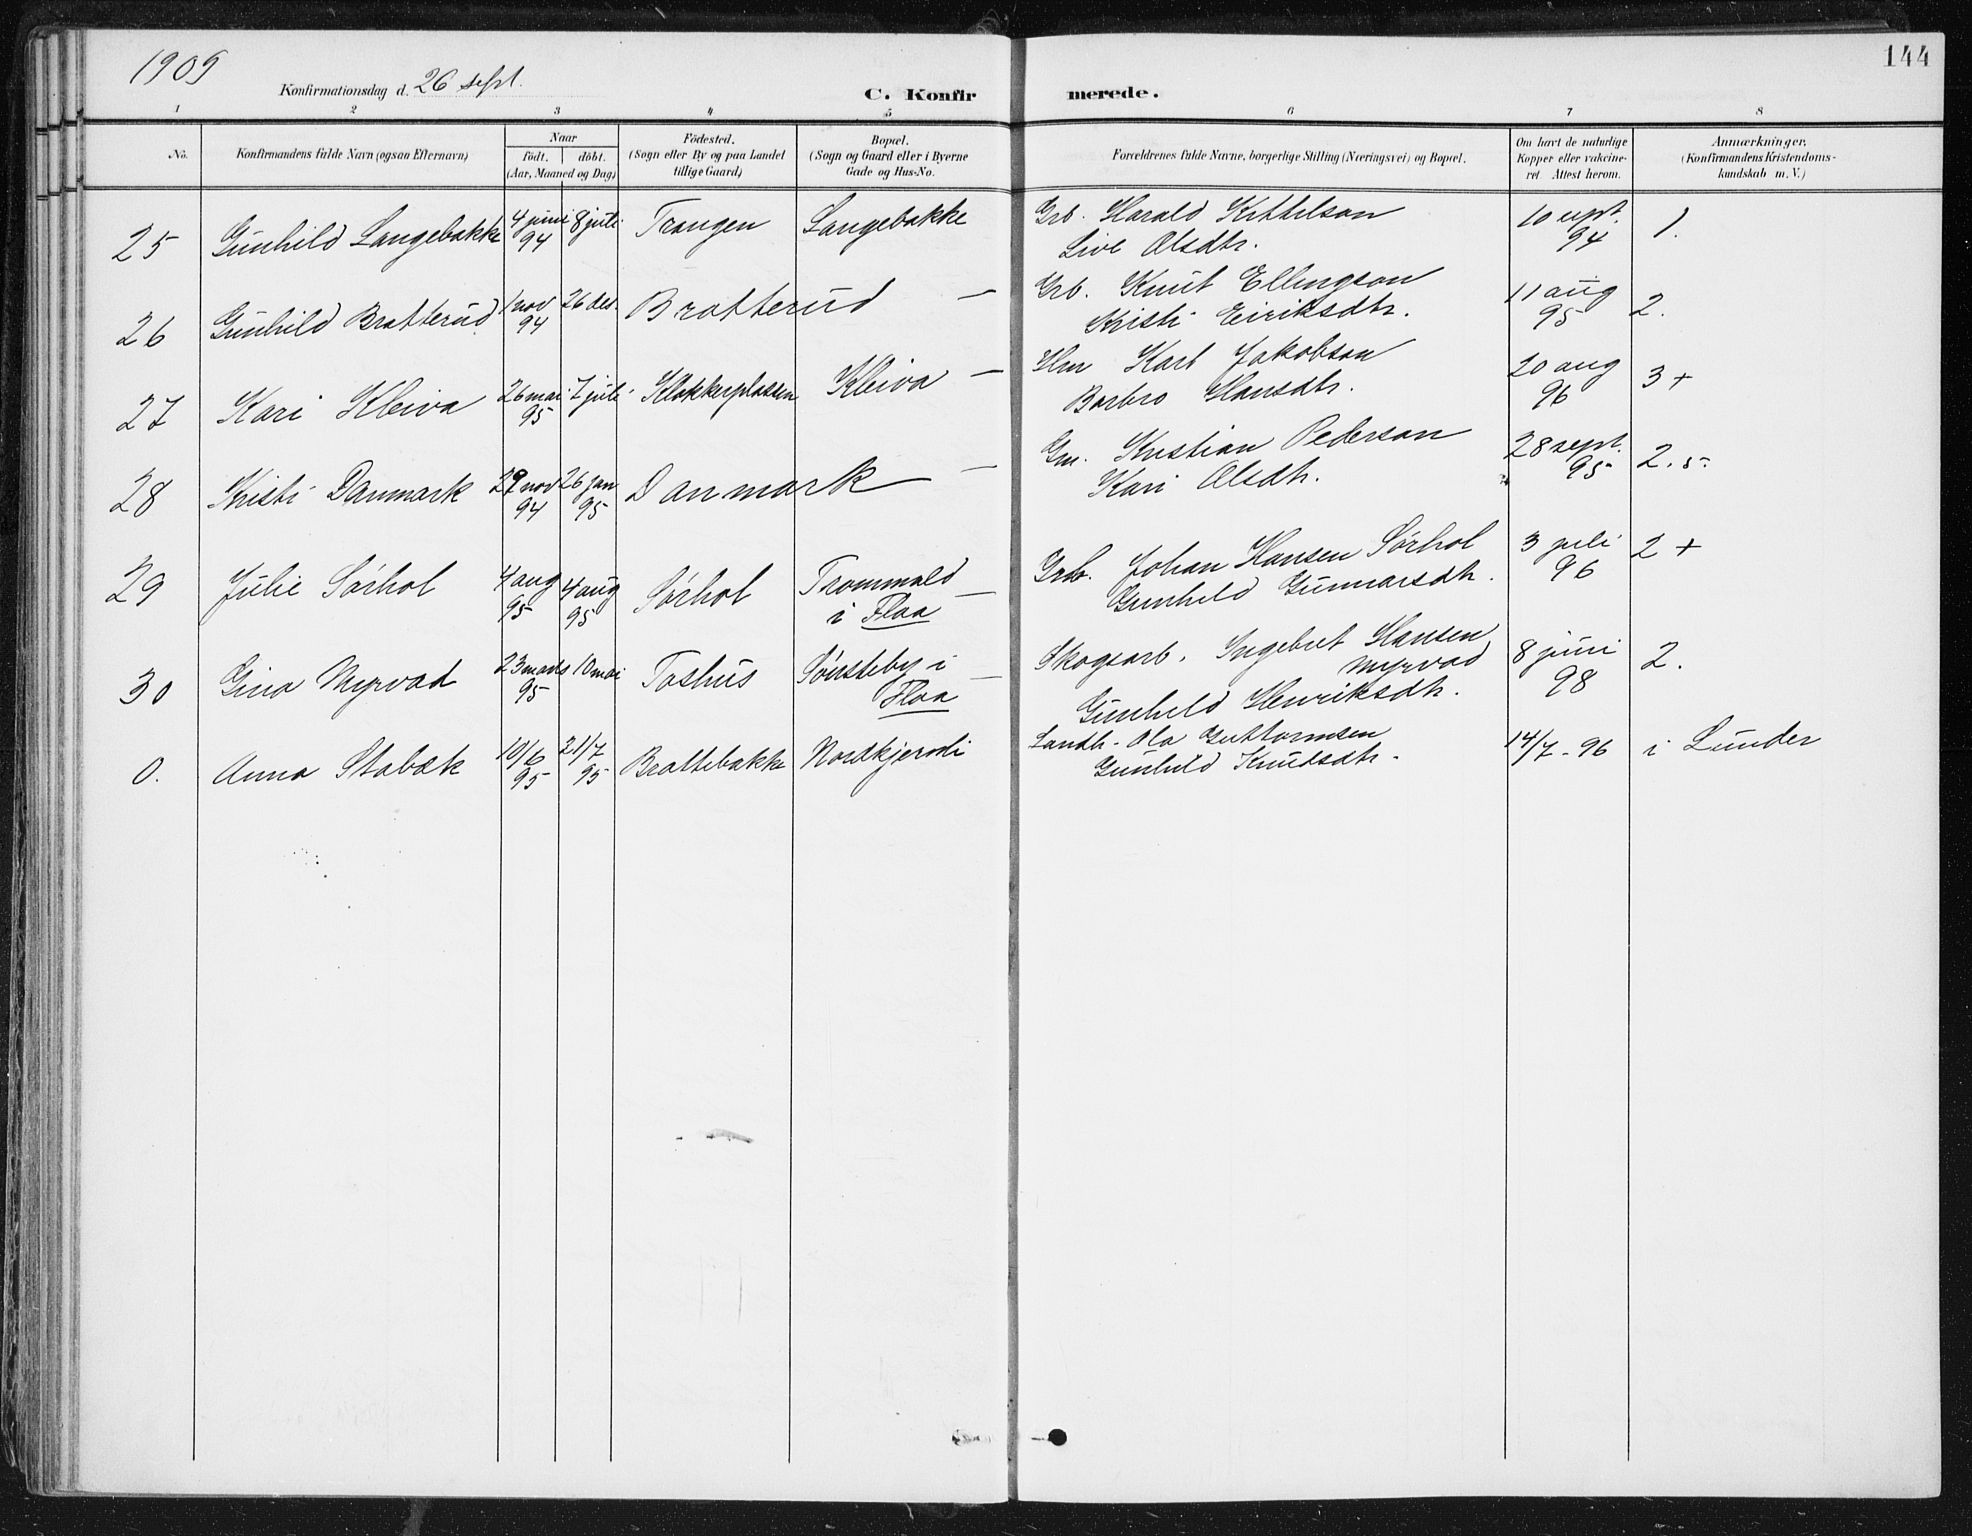 1909
144
Konfirmationsdag d. 26 sept.
C. Konfirmerede.
1 2 3 4 5 6 7 8
No.
Konfirmandens fulde Navn (ogsaa Efternavn)
Naar
födt. döbt.
(Aar, Maaned og Dag)
Födested.
(Sogn eller By og paa Landet
tillige Gaard)
Bopæl.
(Sogn og Gaard eller i Byerne
Gade og Hus-No.
Forældrenes fulde Navne, borgerlige Stilling (Næringsvei) og Bopæl.
Om havt de naturlige
Kopper eller vakcine-
ret Attest herom.
Anmærkninger.
(Konfirmandens Kristendoms-
kundskab m. V.)
25 Gunhild Langebakke 4 juni 94 8 juli Trangen Langebakke Grb. Harald Kittilson 10 sept. 94 1.
Live Olsdtr.
26 Gunhild Bratterud 1 nov 94 26 des. Bratterud — Grb. Knut Ellingson 11 aug 95 2.
Kristi Eiriksdtr.
27 Kari Kleiva 26 mai 95 7 juli Klokkerplassen Kleiva — Hm Karl Jakobson 20 aug 96 3+
Barbro Hansdtr.
28 Kristi Danmark 29 nov 94 26 jan 95 Danmark — Gm. Kristian Pederson 28 sept. 95 2.5
Kari Olsdtr.
29 Julie Sørhol 4 aug 95 4 aug 95 Sørhol Trommald — Grb. Johan Hansen Sørhol 3 juli 96 2+
i Flaa Gunhild Gunnarsdtr.
30 Gina Myrvad 23 mars 95 10 mai Toshus Sønsteby i — Skogsarb. Ingebret Hansen 8 juni 98 2.
Flaa Myrvad
Gunhild Henriksdtr.
0. Anna Stabæk 10/6 95 21/7 95 Brattebakke Nordkjerndi Landh. Ola Guttormsen 14/7-96 i Lunder
Gunhild Knudsdtr.